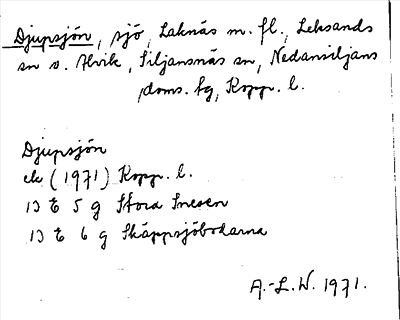 Djupsjön, sjö, Laknäs m. fl., Leksands
sn o. Alvik, Siljansnäs sn, Nedansiljans
doms. tg, Kopp. l.
Djupsjön
ek (1971) Kopp. l.
13 E 5 g Stora Snesen
13 E 6 g Skäppsjöbodarna
A.-L. W. 1971.